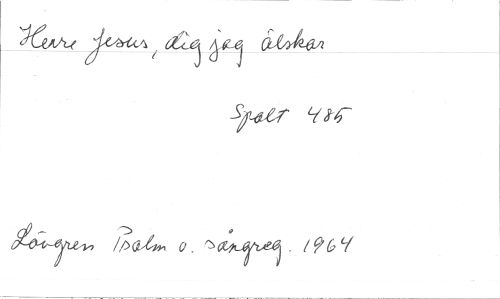 Herre Jesus, dig jag älskar
Spalt 485
Lövgren Psalm o. sångreg. 1964